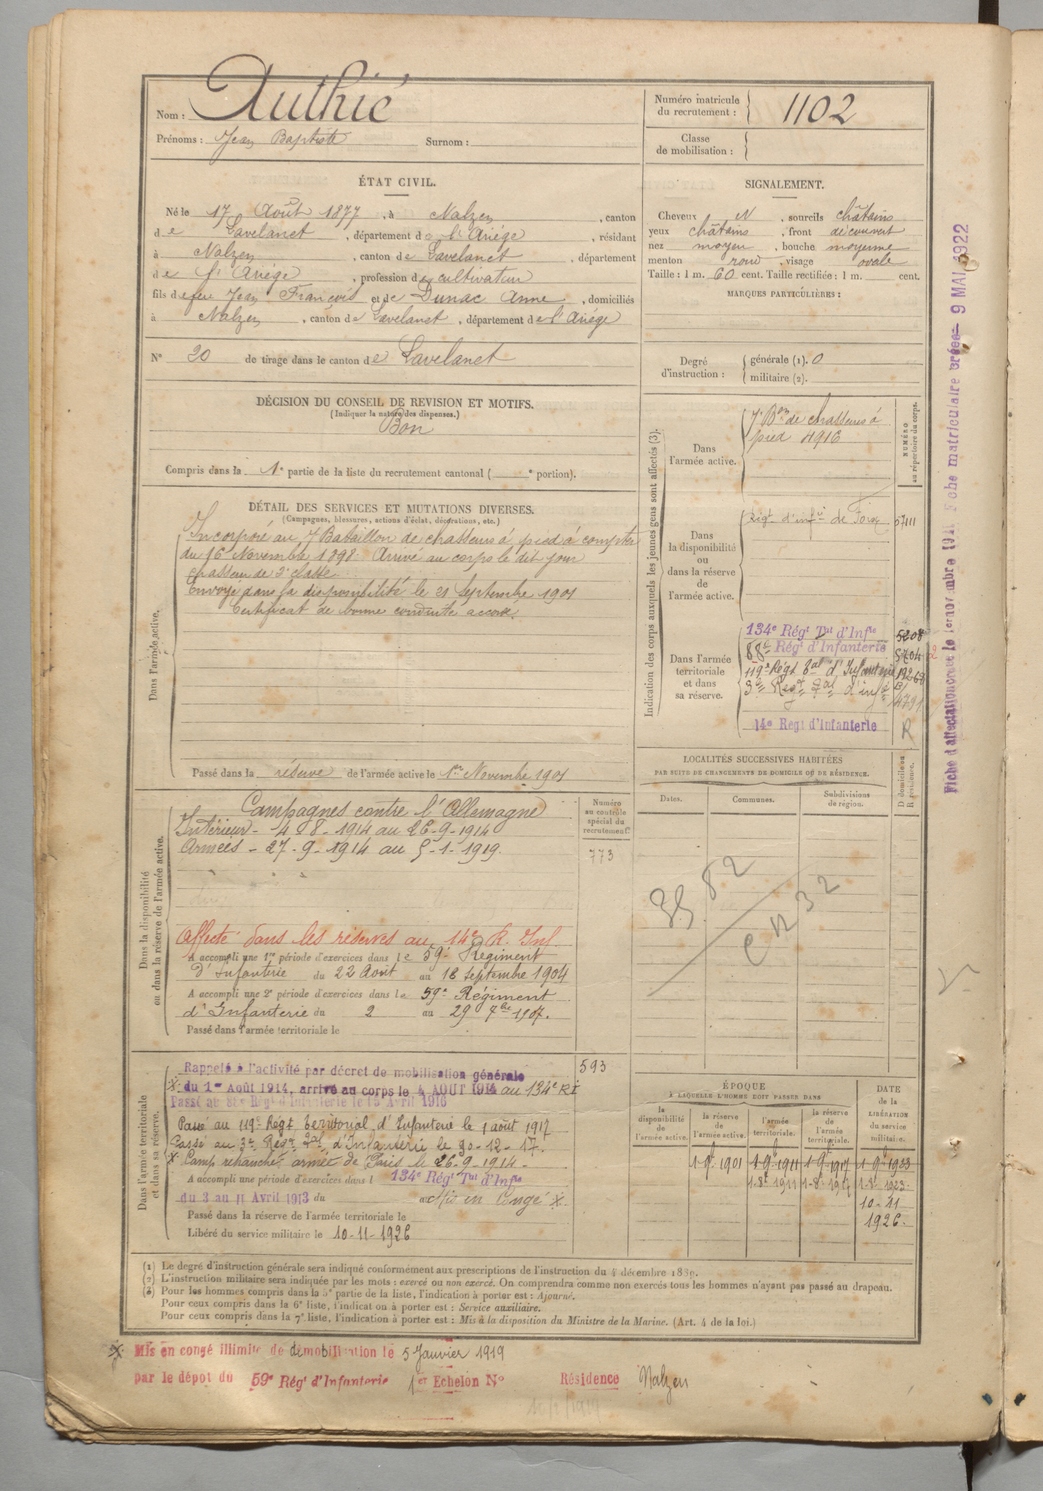 Nom : Authié
Prénoms : Jean Baptiste Surnom :
Numéro matricule du recrutement : 1102
Classe de mobilisation :
ÉTAT CIVIL.
Né le 17 Août 1877, à Nalzen, canton
de Lavelanet, département de l'Ariége, résidant
à Nalzen, canton de Lavelanet, département
de l'Ariége, profession de cultivateur
fils de feu Jean François et de Dunac Anne, domiciliés
à Nalzen, canton de Lavelanet, département de l'Ariége
N° 20 de tirage dans le canton de Lavelanet
SIGNALEMENT.
Cheveux N, sourcils châtains
yeux châtains, front découvert
nez moyen, bouche moyenne
menton rond, visage ovale
Taille : 1 m. 60 cent. Taille rectifiée : 1 m. cent.
MARQUES PARTICULIÈRES :
Degré d'instruction : générale (1). 0
militaire (2).
DÉCISION DU CONSEIL DE REVISION ET MOTIFS.
(Indiquer la nature des dispenses.)
Bon
Compris dans la 1e partie de la liste du recrutement cantonal ( e portion).
DÉTAIL DES SERVICES ET MUTATIONS DIVERSES.
(Campagnes, blessures, actions d'éclat, décorations, etc.)
Dans l'armée active.
Incorporé au 7 Bataillon de chasseurs à pied à compter
du 16 Novembre 1898. Arrivé au corps le dit jour
chasseur de 2e classe
Envoyé dans la disponibilité le 21 Septembre 1901
Certificat de bonne conduite accordé
Passé dans la réserve de l'armée active le 1er Novembre 1901
Indication des corps auxquels les jeunes gens sont affectés (3).
NUMÉRO au répertoire du corps.
Dans l'armée active.
7e Bon de chasseurs à
pied 4916
Dans la disponibilité ou dans la réserve de l'armée active.
Régt d'infie de Foix
Dans l'armée territoriale et dans sa réserve.
134e Régt Tal d'Infie 5208
88e Régt d'Infanterie 5704
119e Régt Tal d'Infanterie
3e Régt Tal d'infie
14e Régt d'Infanterie R
LOCALITÉS SUCCESSIVES HABITÉES
PAR SUITE DE CHANGEMENTS DE DOMICILE OU DE RÉSIDENCE.
Dates. Communes. Subdivisions de région. D domicile ou R résidence.
Dans la disponibilité ou dans la réserve de l'armée active.
Numéro au contrôle spécial du recrutement.
773
Campagnes contre l'Allemagne
Intérieur - 4-8-1914 au 26-9-1914
Armées - 27-9-1914 au 5-1-1919.
Affecté dans les réserves au 14e R. Inf
A accompli une 1re période d'exercices dans le 59e Régiment
d'Infanterie du 22 Août au 18 Septembre 1904
A accompli une 2e période d'exercices dans le 59e Régiment
d'Infanterie du 2 au 29 7bre 1907.
Passé dans l'armée territoriale le
Dans l'armée territoriale et dans sa réserve.
593
Rappelé à l'activité par décret de mobilisation générale
X du 1er Août 1914, arrivé au corps le 4 AOUT 1914 au 134e RI
Passé au 88e Régt d'Infanterie le 15 Avril 1916
Passé au 119e Régt Territorial d'Infanterie le 1 août 1917
Passé au 3e Régt Tal d'Infanterie le 30-12-17.
X Camp retranché armée de Paris le 26-9-1914.
A accompli une période d'exercices dans l 134e Régt Tal d'Infie
du 3 au 11 Avril 1913 du au Mis en congé X
Passé dans la réserve de l'armée territoriale le
Libéré du service militaire le 10-11-1926
ÉPOQUE
À LAQUELLE L'HOMME DOIT PASSER DANS
la disponibilité de l'armée active. la réserve de l'armée active. l'armée territoriale. la réserve de l'armée territoriale. DATE de la LIBÉRATION du service militaire.
1-9-1901 1-9-1911 1-9-1917 1-9-1923
1-8-1911 1-8-1917 1-8-1923
10-11
1926.
(1) Le degré d'instruction générale sera indiqué conformément aux prescriptions de l'instruction du 4 décembre 1889.
(2) L'instruction militaire sera indiquée par les mots : exercé ou non exercé. On comprendra comme non exercés tous les hommes n'ayant pas passé au drapeau.
(3) Pour les hommes compris dans la 5e partie de la liste, l'indication à porter est : Ajourné.
Pour ceux compris dans la 6e liste, l'indication à porter est : Service auxiliaire.
Pour ceux compris dans la 7e liste, l'indication à porter est : Mis à la disposition du Ministre de la Marine. (Art. 4 de la loi.)
X Mis en congé illimité de démobilisation le 5 Janvier 1919
par le dépot du 59e Régt d'Infanterie 1er Echelon N° Résidence Nalzen